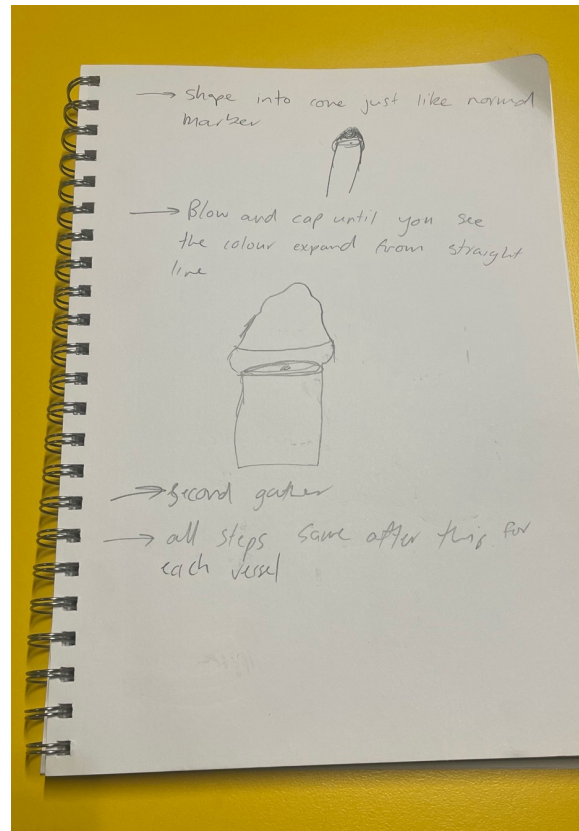 → Shape into cone just like normal
marker
→ Blow and cap until you see
the colour expand from straight
line
→ Second gather
→ all steps same after this for
each vessel